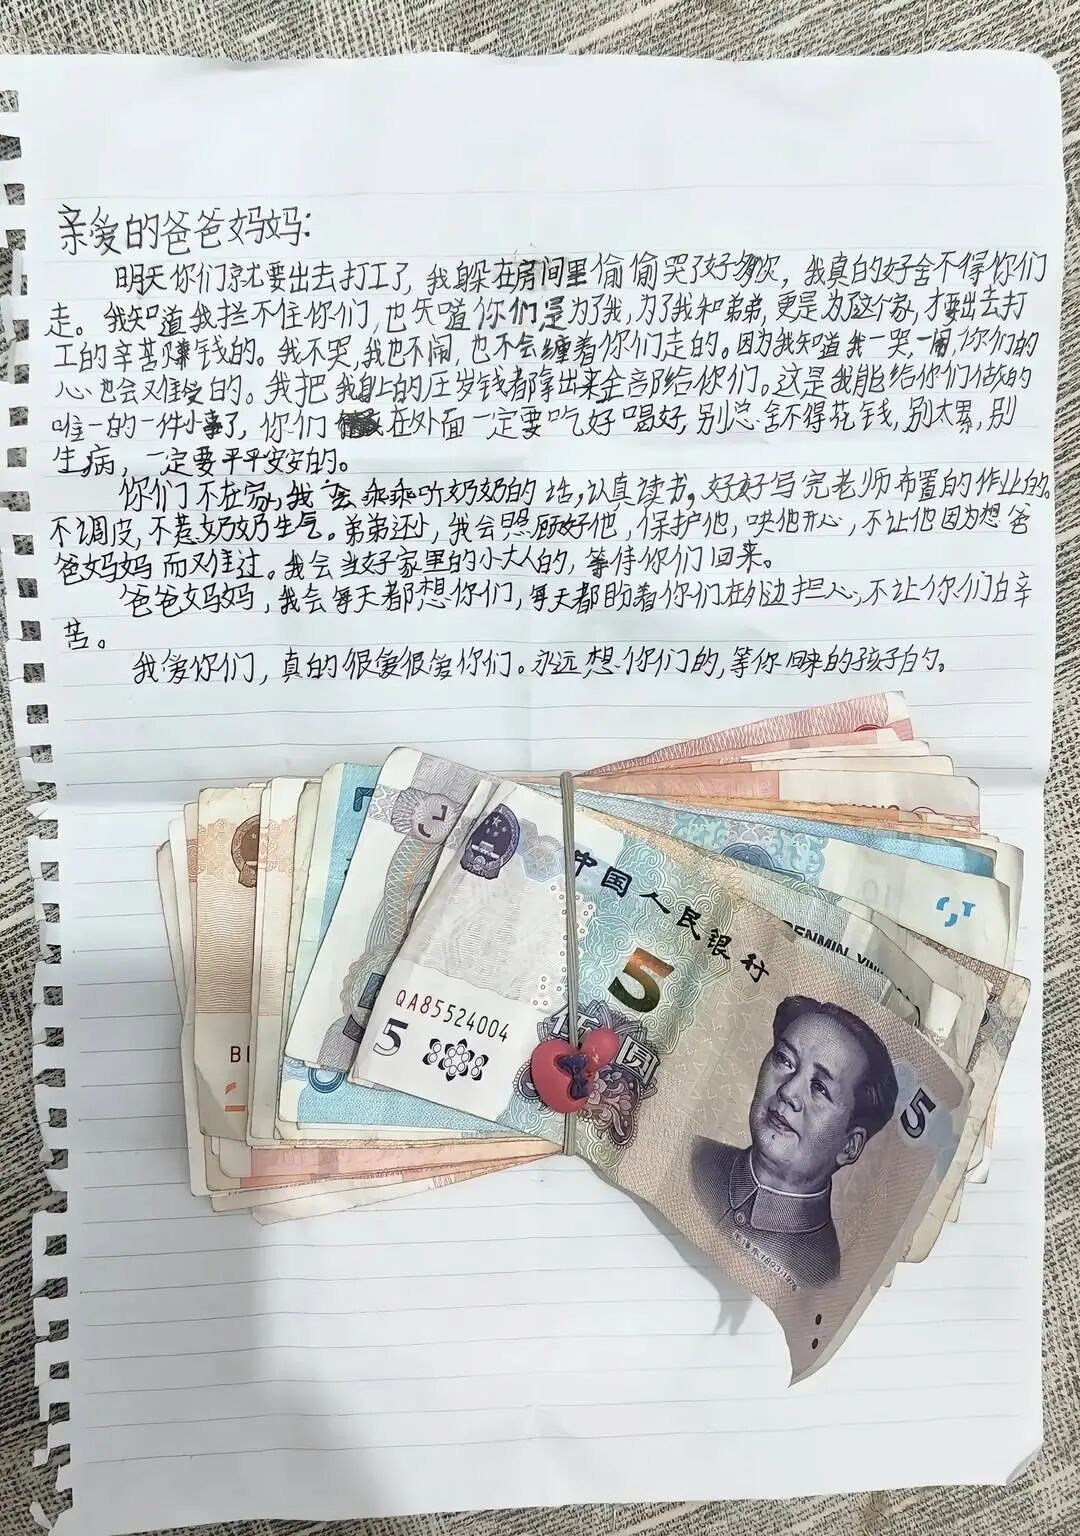 亲爱的爸爸妈妈:
明天你们就要出去打工了，我躲在房间里偷偷哭了好多次，我真的好舍不得你们
走。我知道我拦不住你们，也知道你们是为了我，为了我和弟弟，更是为了这个家，才要出去打
工的辛苦赚钱的。我不哭，我也不闹，也不会缠着你们走的。因为我知道我一哭，一闹，你们的
心也会难受的。我把我身上的压岁钱都拿出来全部给你们。这是我能给你们做的
唯一的一件小事了，你们在外面一定要吃好喝好，别总舍不得花钱，别太累，别
生病，一定要平平安安的。
你们不在家，我会乖乖听奶奶的话，认真读书，好好写完老师布置的作业的。
不调皮，不惹奶奶生气。弟弟还小，我会照顾好他，保护他，哄他开心，不让他因为想爸
爸妈妈而难过。我会当好家里的小大人的，等待你们回来。
爸爸妈妈，我会每天都想你们，每天都盼着你们在外边担心，不让你们白辛
苦。
我爱你们，真的很爱很爱你们。永远想你们的，等你回来的孩子的。
中国人民银行
RENMIN YIN
5
QA85524004
5
伍圆
5
BI